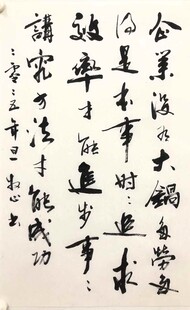 企業沒有大鍋多勞多
得是本事時〻追求
效率才能進步事〻
講究方法才能成功
二零二五年旦 牧心書